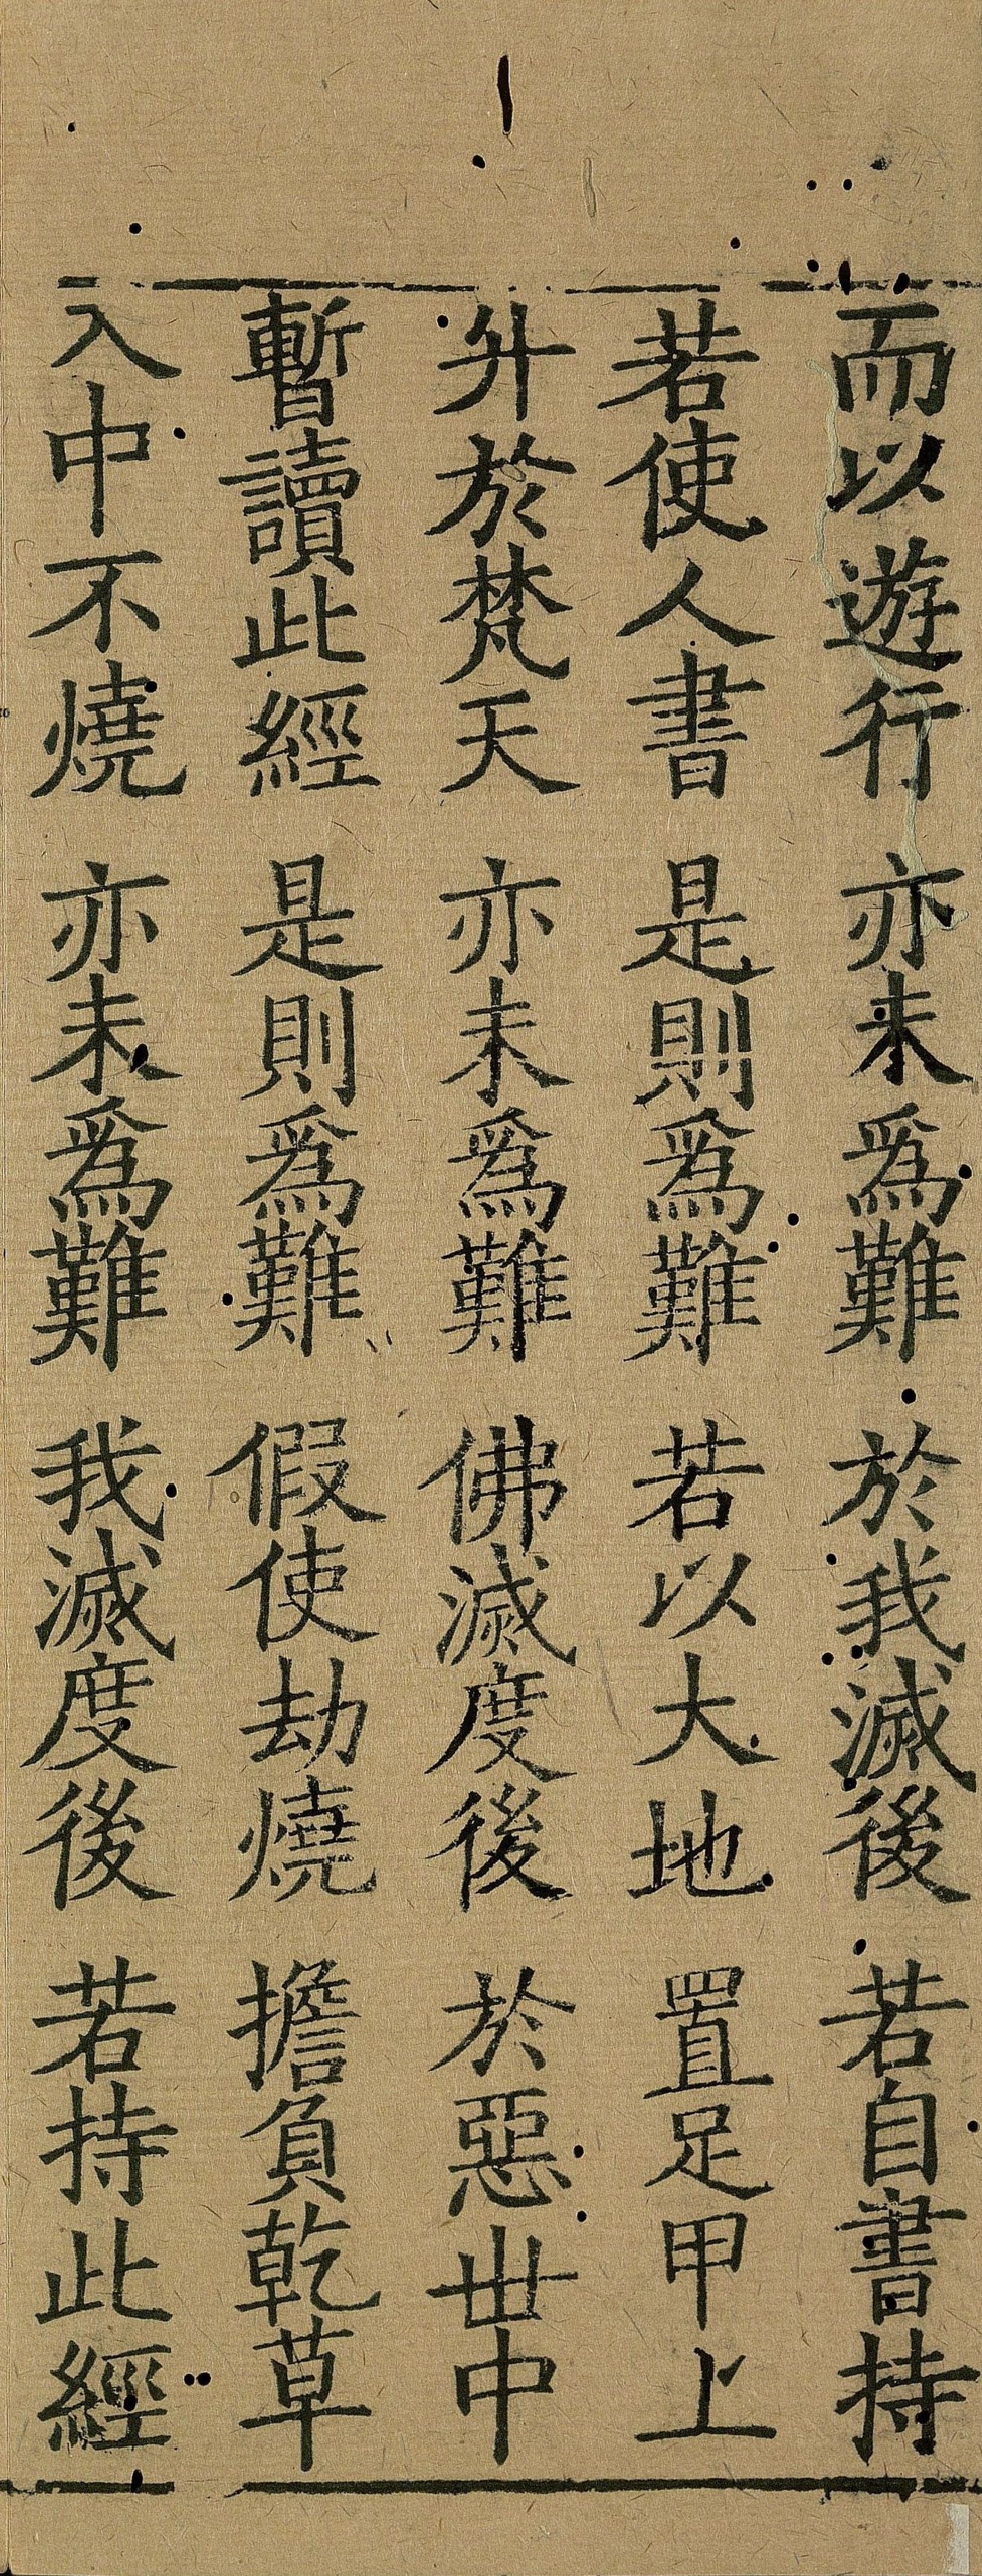 而以遊行　亦未爲難　於我滅後　若自書持
若使人書　是則爲難　若以大地　置足甲上
昇於梵天　亦未爲難　佛滅度後　於惡世中
暫讀此經　是則爲難　假使劫燒　擔負乾草
入中不燒　亦未爲難　我滅度後　若持此經